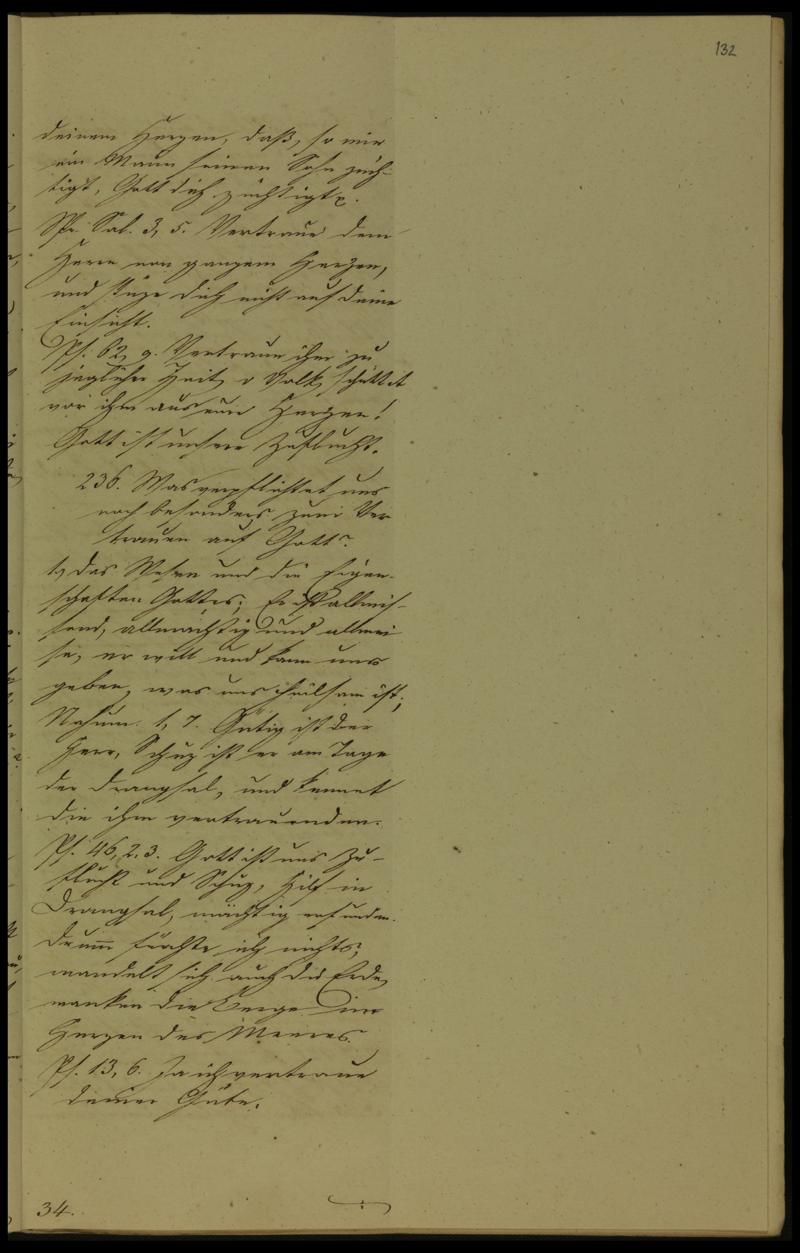 132
deinem Herzen, daß, so wie
ein Mann seinen Sohn züch-
tigt, Gott dich züchtigt
Spr. Sal. 3, 5. Vertraue dem
Herrn von ganzem Herzen,
und stüze dich nicht auf deine
Einsicht.
Ps. 62, 9. Vertraue ihm zu
jeglicher Zeit, o Volk, schüttet
vor ihm aus eure Herzen!
Gott ist unsere Zuflucht.
236. Was verpflichtet uns
noch besonders zum Ver
trauen auf Gott?
1, Das Wesen und die Eigen-
schaften Gottes; Er ist allwis-
send, allmächtig und allwei
se, er will und kann uns
geben, was uns heilsam ist;
Nahum. 1, 7. Gütig ist der
Herr, Schuz ist er am Tage
der Drangsal, und kennet
die ihm vertrauenden.
Ps. 46, 2. 3. Gott ist uns Zu-
flucht und Schuz, Hilf in
Drangsal, mächtig erfunden.
Drum fürchte ich nichts,
wandelt sich auch die Erde,
wanken die Berge im
Herzen des Meeres.
Ps. 13, 6. Ja ich vertraue
deiner Güte.
34.